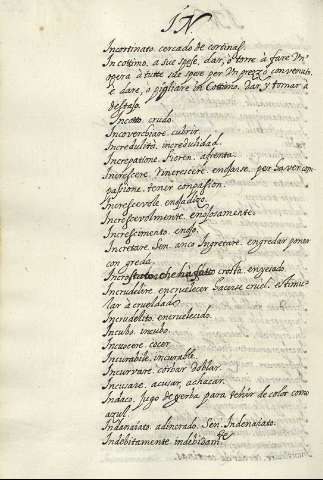 IN.
Incortinato. cercado de cortinas.
In cottimo. a sue spese, dar, o torre à fare Un'
opera à tutte sue spese per Un prezzo convenuto,
è dare, o pigliare in Cottimo. dar, y tomar a
destajo.
Incotto. crudo.
Incoverchiare. cubrir.
Incredulità. incredulidad.
Increpatione. afrenta.
Increscere. Vincrescere. enfadarse. per haver com
pasione. tener conpasion.
Increscevole. enfadoso.
Increscevolmente. enojosamente.
Increscimento. enojo.
Incretare. Sen. anco Ingretare. engredar poner
con greda.
Incrostato, che ha fatto crosta. enyesado.
Incrudelire. encruelecer hacerse cruel. estimu
lar à crueldad.
Incrudelito. encruelecido.
Incubo. incubo.
Incuocere. cocer.
Incurabile. incurable.
Incurvare. corbar doblar.
Incusare. acusar, achacar.
Indaco. Jugo de yerba para teñir de color como
azul.
Indanaiato. adinerado. Sen. Indenaiato.
Indebitamente. indebidamte